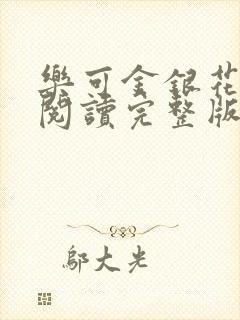 樂可金銀花
閱讀完整版
鄔大光